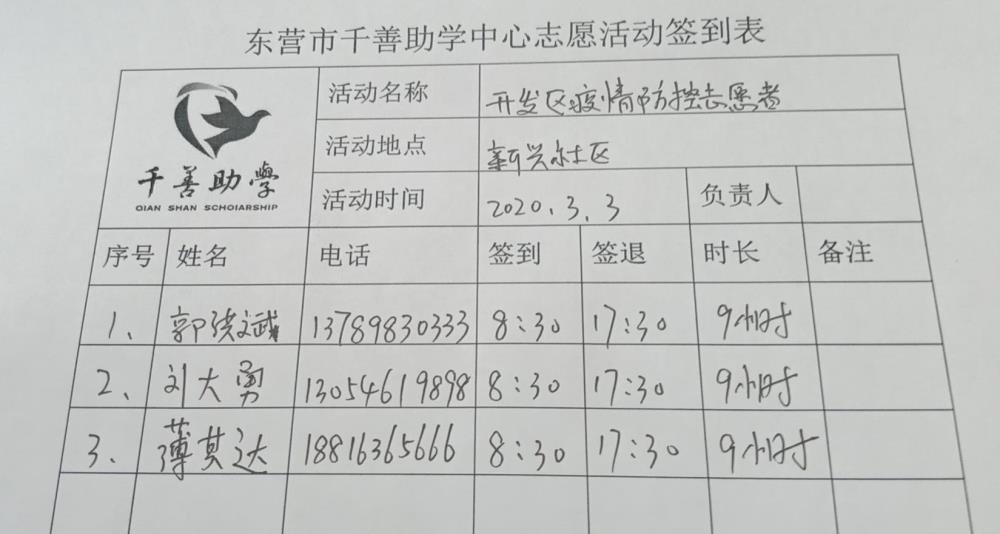 东营市千善助学中心志愿活动签到表
千善助學
QIAN SHAN SCHOlARSHIP
活动名称 开发区疫情防控志愿者
活动地点 新兴社区
活动时间 2020.3.3 负责人
序号 姓名 电话 签到 签退 时长 备注
1、 郭 斌 13789830333 8:30 17:30 9小时
2、 刘大勇 13054619898 8:30 17:30 9小时
3、 薄其达 18816365666 8:30 17:30 9小时